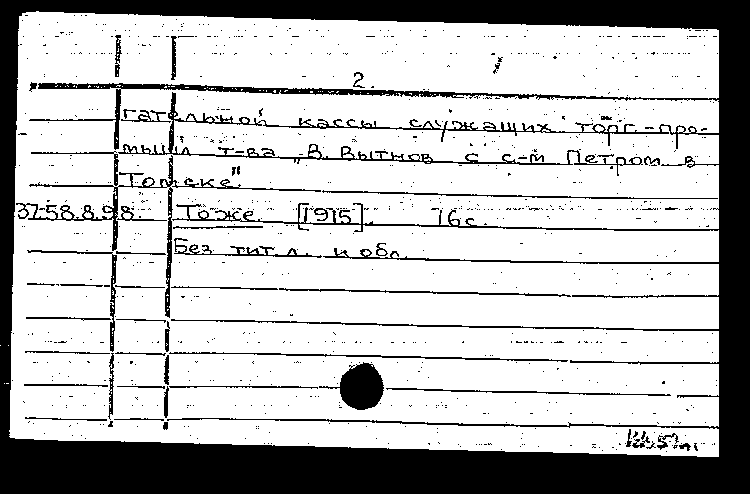 2.
гательной кассы служащих торг.-про-
мышл т-ва „В. Вытнов с с-м Петром в
Томске".
37-58.8.98. Тоже. [1915]. 16с.
Без тит. л. и обл.